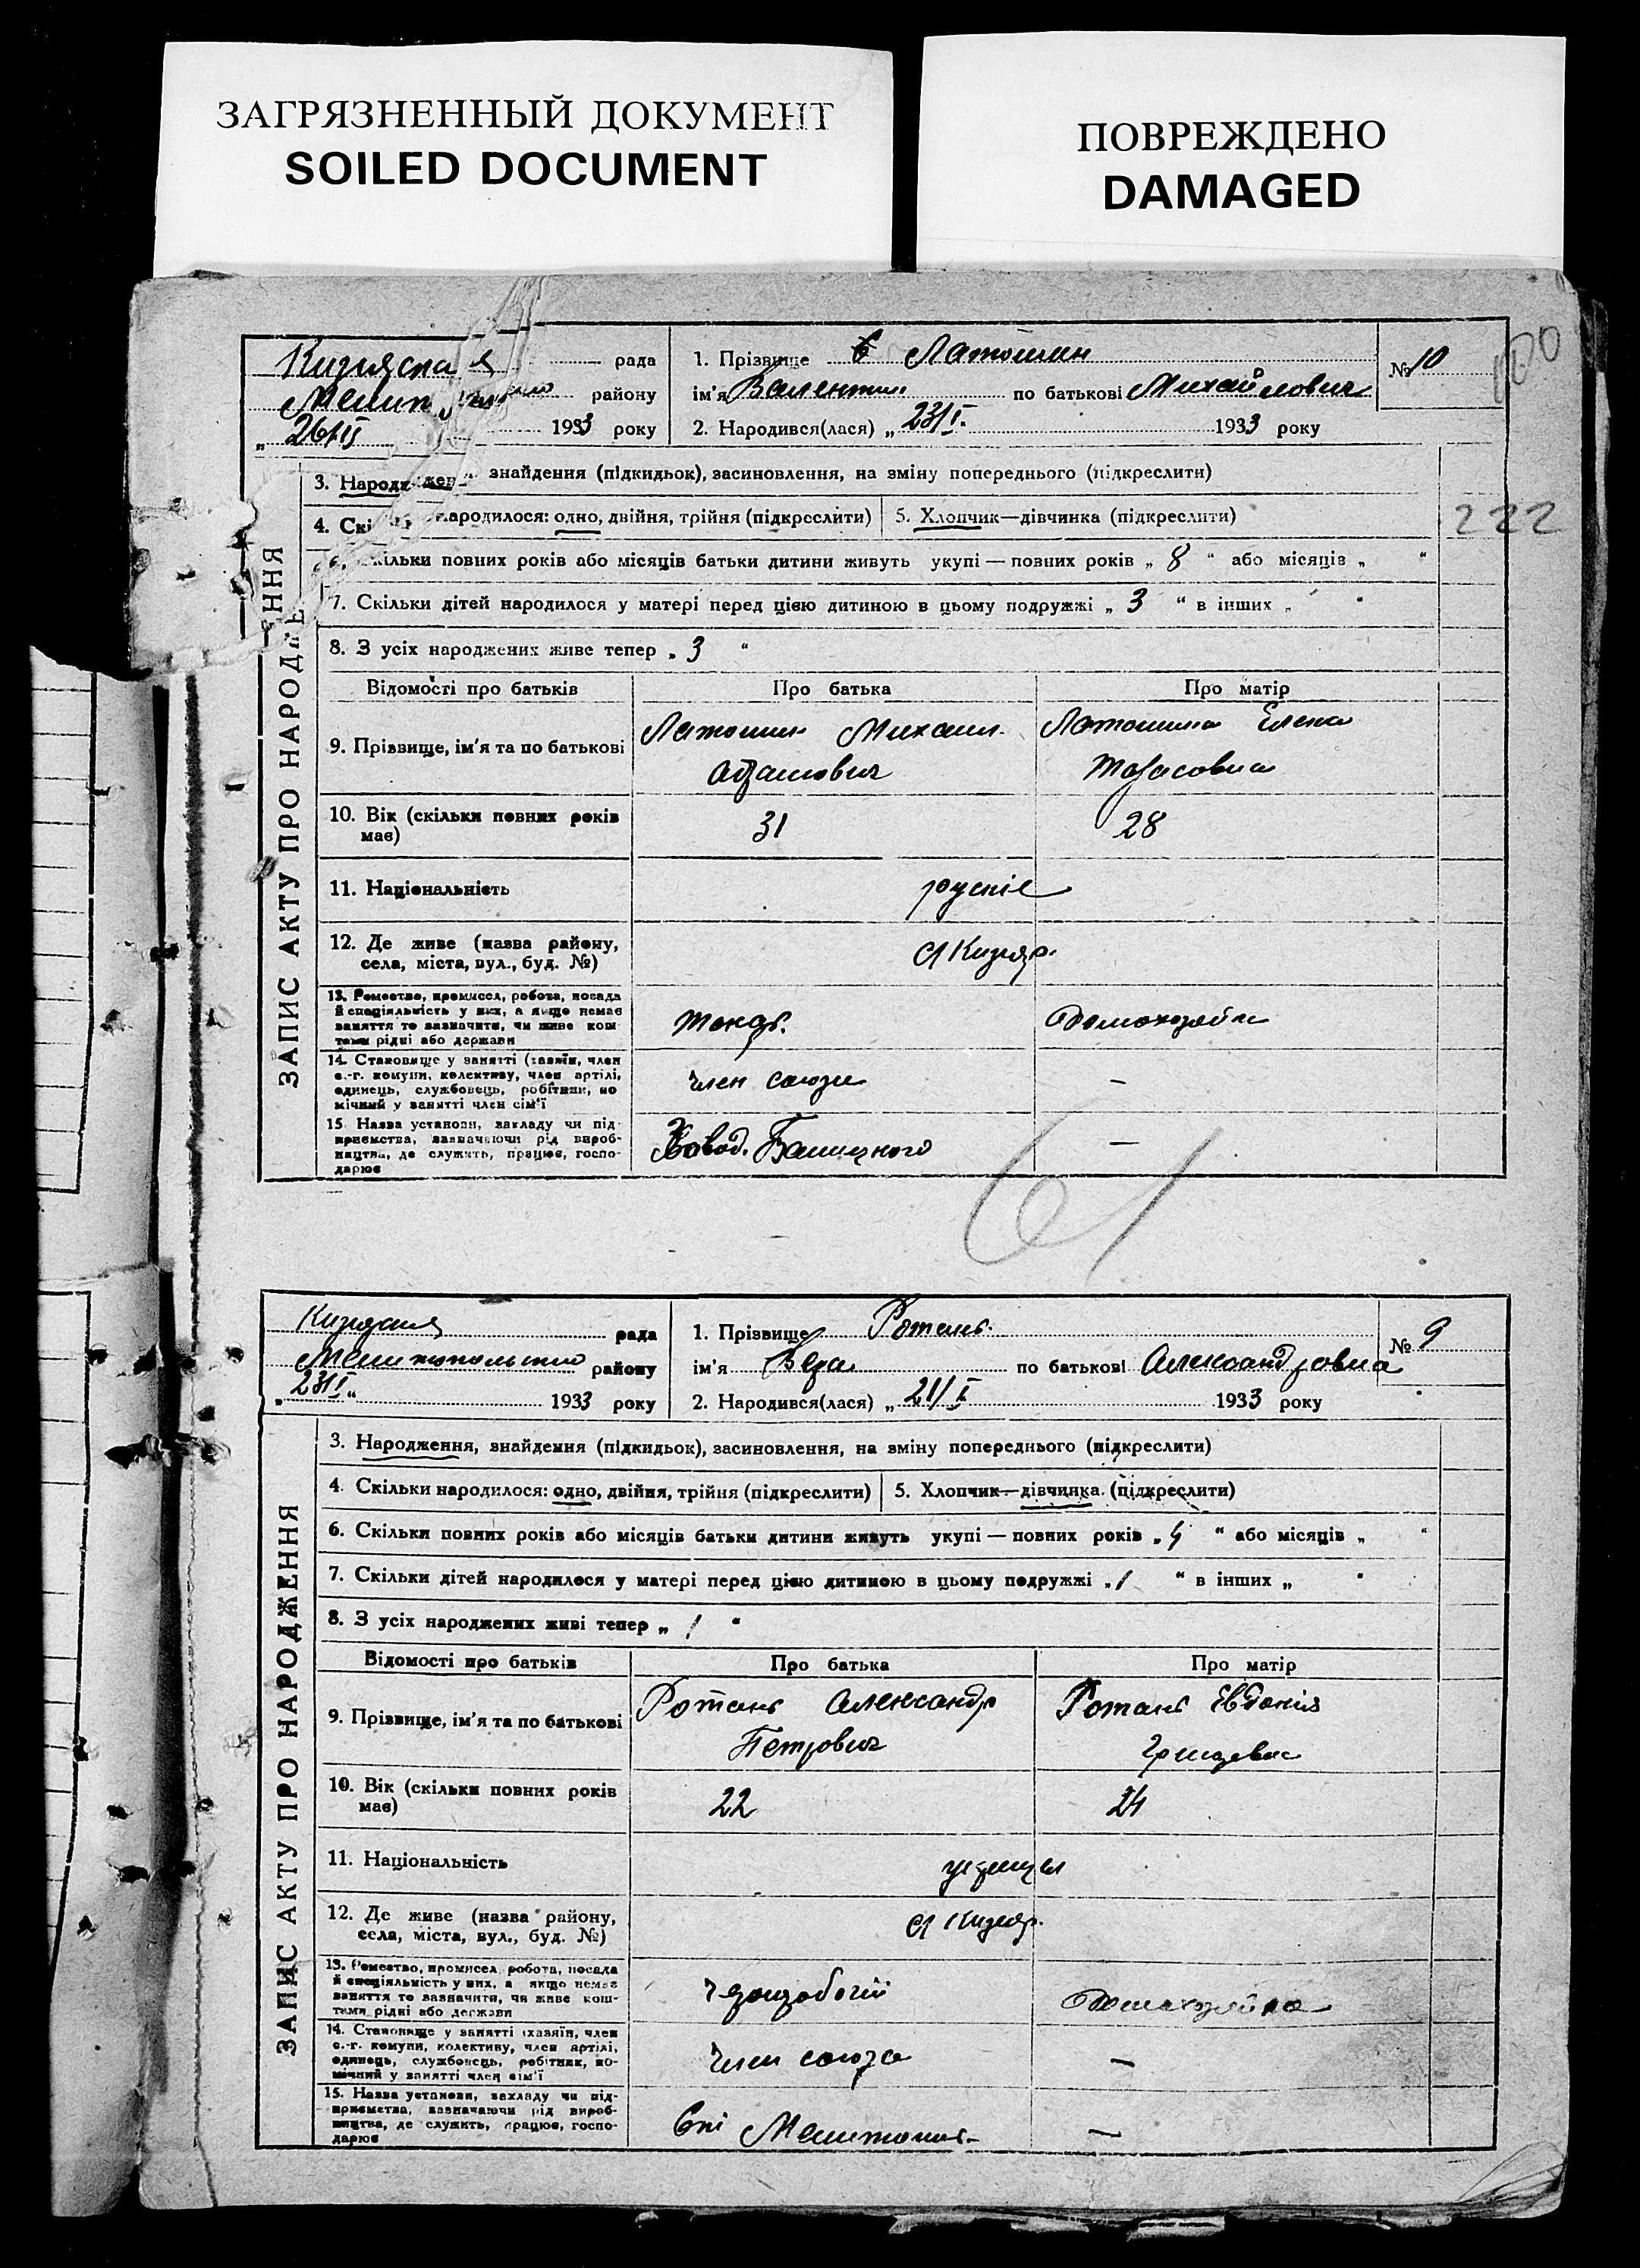 ЗАГРЯЗНЕННЫЙ ДОКУМЕНТ
SOILED DOCUMENT
ПОВРЕЖДЕНО
DAMAGED
100
222
рада
району
„ 26/II 1933 року
1. Прізвище Латошин
ім'я Валентин по батькові Михайлович
2. Народився(лася) „ 23/I. 1933 року
№ 10
ЗАПИС АКТУ ПРО НАРОД ЕННЯ
3. Народжен знайдення (підкидьок), засиновлення, на зміну попереднього (підкреслити)
4. Скі народилося: одно, двійня, трійня (підкреслити)
5. Хлопчик—дівчинка (підкреслити)
6. Скільки повних років або місяців батьки дитини живуть укупі — повних років „ 8 " або місяців „ "
7. Скільки дітей народилося у матері перед цією дитиною в цьому подружжі „ 3 " в інших „ "
8. З усіх народжених живе тепер „ 3 "
Відомості про батьків Про батька Про матір
9. Прізвище, ім'я та по батькові
Латошин Михаил
Латошина Елена
Тарасовна
10. Вік (скільки повних років має)
31
28
11. Національність
рускіе
12. Де живе (назва району, села, міста, вул., буд. №)
с Кизияр.
13. Ремество, промисел, робота, посада
й спеціяльність у них, а якщо немає
заняття то зазначити, чи живе кош
тами рідні або держави
14. Становище у занятті (хазяїн, член
с.-г. комуни, колективу, член артілі,
одинець, службовець, робітник, по
мічний у занятті член сім'ї
член союза
—
15. Назва установи, закладу чи під-
приємства, зазначаючи рід вироб-
ництва, де служить, працює, госпо-
дарює
—
рада
Мелитопольського району
„ 23/I " 1933 року
1. Прізвище Ротань.
ім'я Вера по батькові Александровна
2. Народився(лася) „ 21/I 1933 року
№ 9
ЗАПИС АКТУ ПРО НАРОДЖЕННЯ
3. Народження, знайдення (підкидьок), засиновлення, на зміну попереднього (підкреслити)
4. Скільки народилося: одно, двійня, трійня (підкреслити)
5. Хлопчик—дівчинка (підкреслити)
6. Скільки повних років або місяців батьки дитини живуть укупі — повних років „ 4 " або місяців „ "
7. Скільки дітей народилося у матері перед цією дитиною в цьому подружжі „ 1 " в інших „ "
8. З усіх народжених живі тепер „ 1 "
Відомості про батьків Про батька Про матір
9. Прізвище, ім'я та по батькові
Ротань Александр
Петрович
Ротань Евдокія
10. Вік (скільки повних років має)
22
24
11. Національність
12. Де живе (назва району, села, міста, вул., буд. №)
с Кизияр.
13. Ремество, промисел, робота, посада
й спеціяльність у них, а якщо немає
заняття то зазначити, чи живе кош-
тами рідні або держави
Чернорабочій
14. Становище у занятті (хазяїн, член
с.-г. комуни, колективу, член артілі,
одинець, службовець, робітник, по-
мічний у занятті член сім'ї
член союза
—
15. Назва установи, закладу чи під-
приємства, зазначаючи рід вироб-
ництва, де служить, працює, госпо-
дарює
—